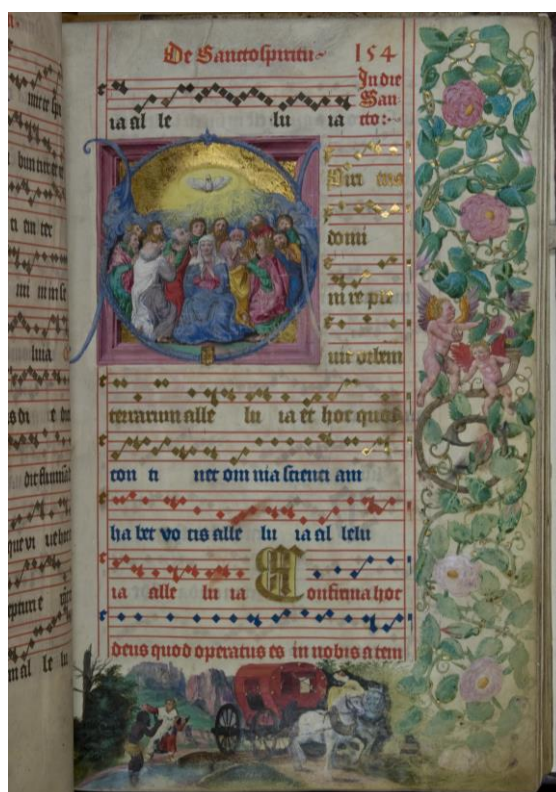 De Sanctospiritu 154
In die
San
cto:
ia al le lu ia
Spiri tus
domi
ni reple
uit orbem
terrarum alle lu ia et hoc quod
con ti net om nia scienci am
ha bet vo cis alle lu ia al lelu
ia alle lu ia Confirma hoc
deus quod operatus es in nobis a tem